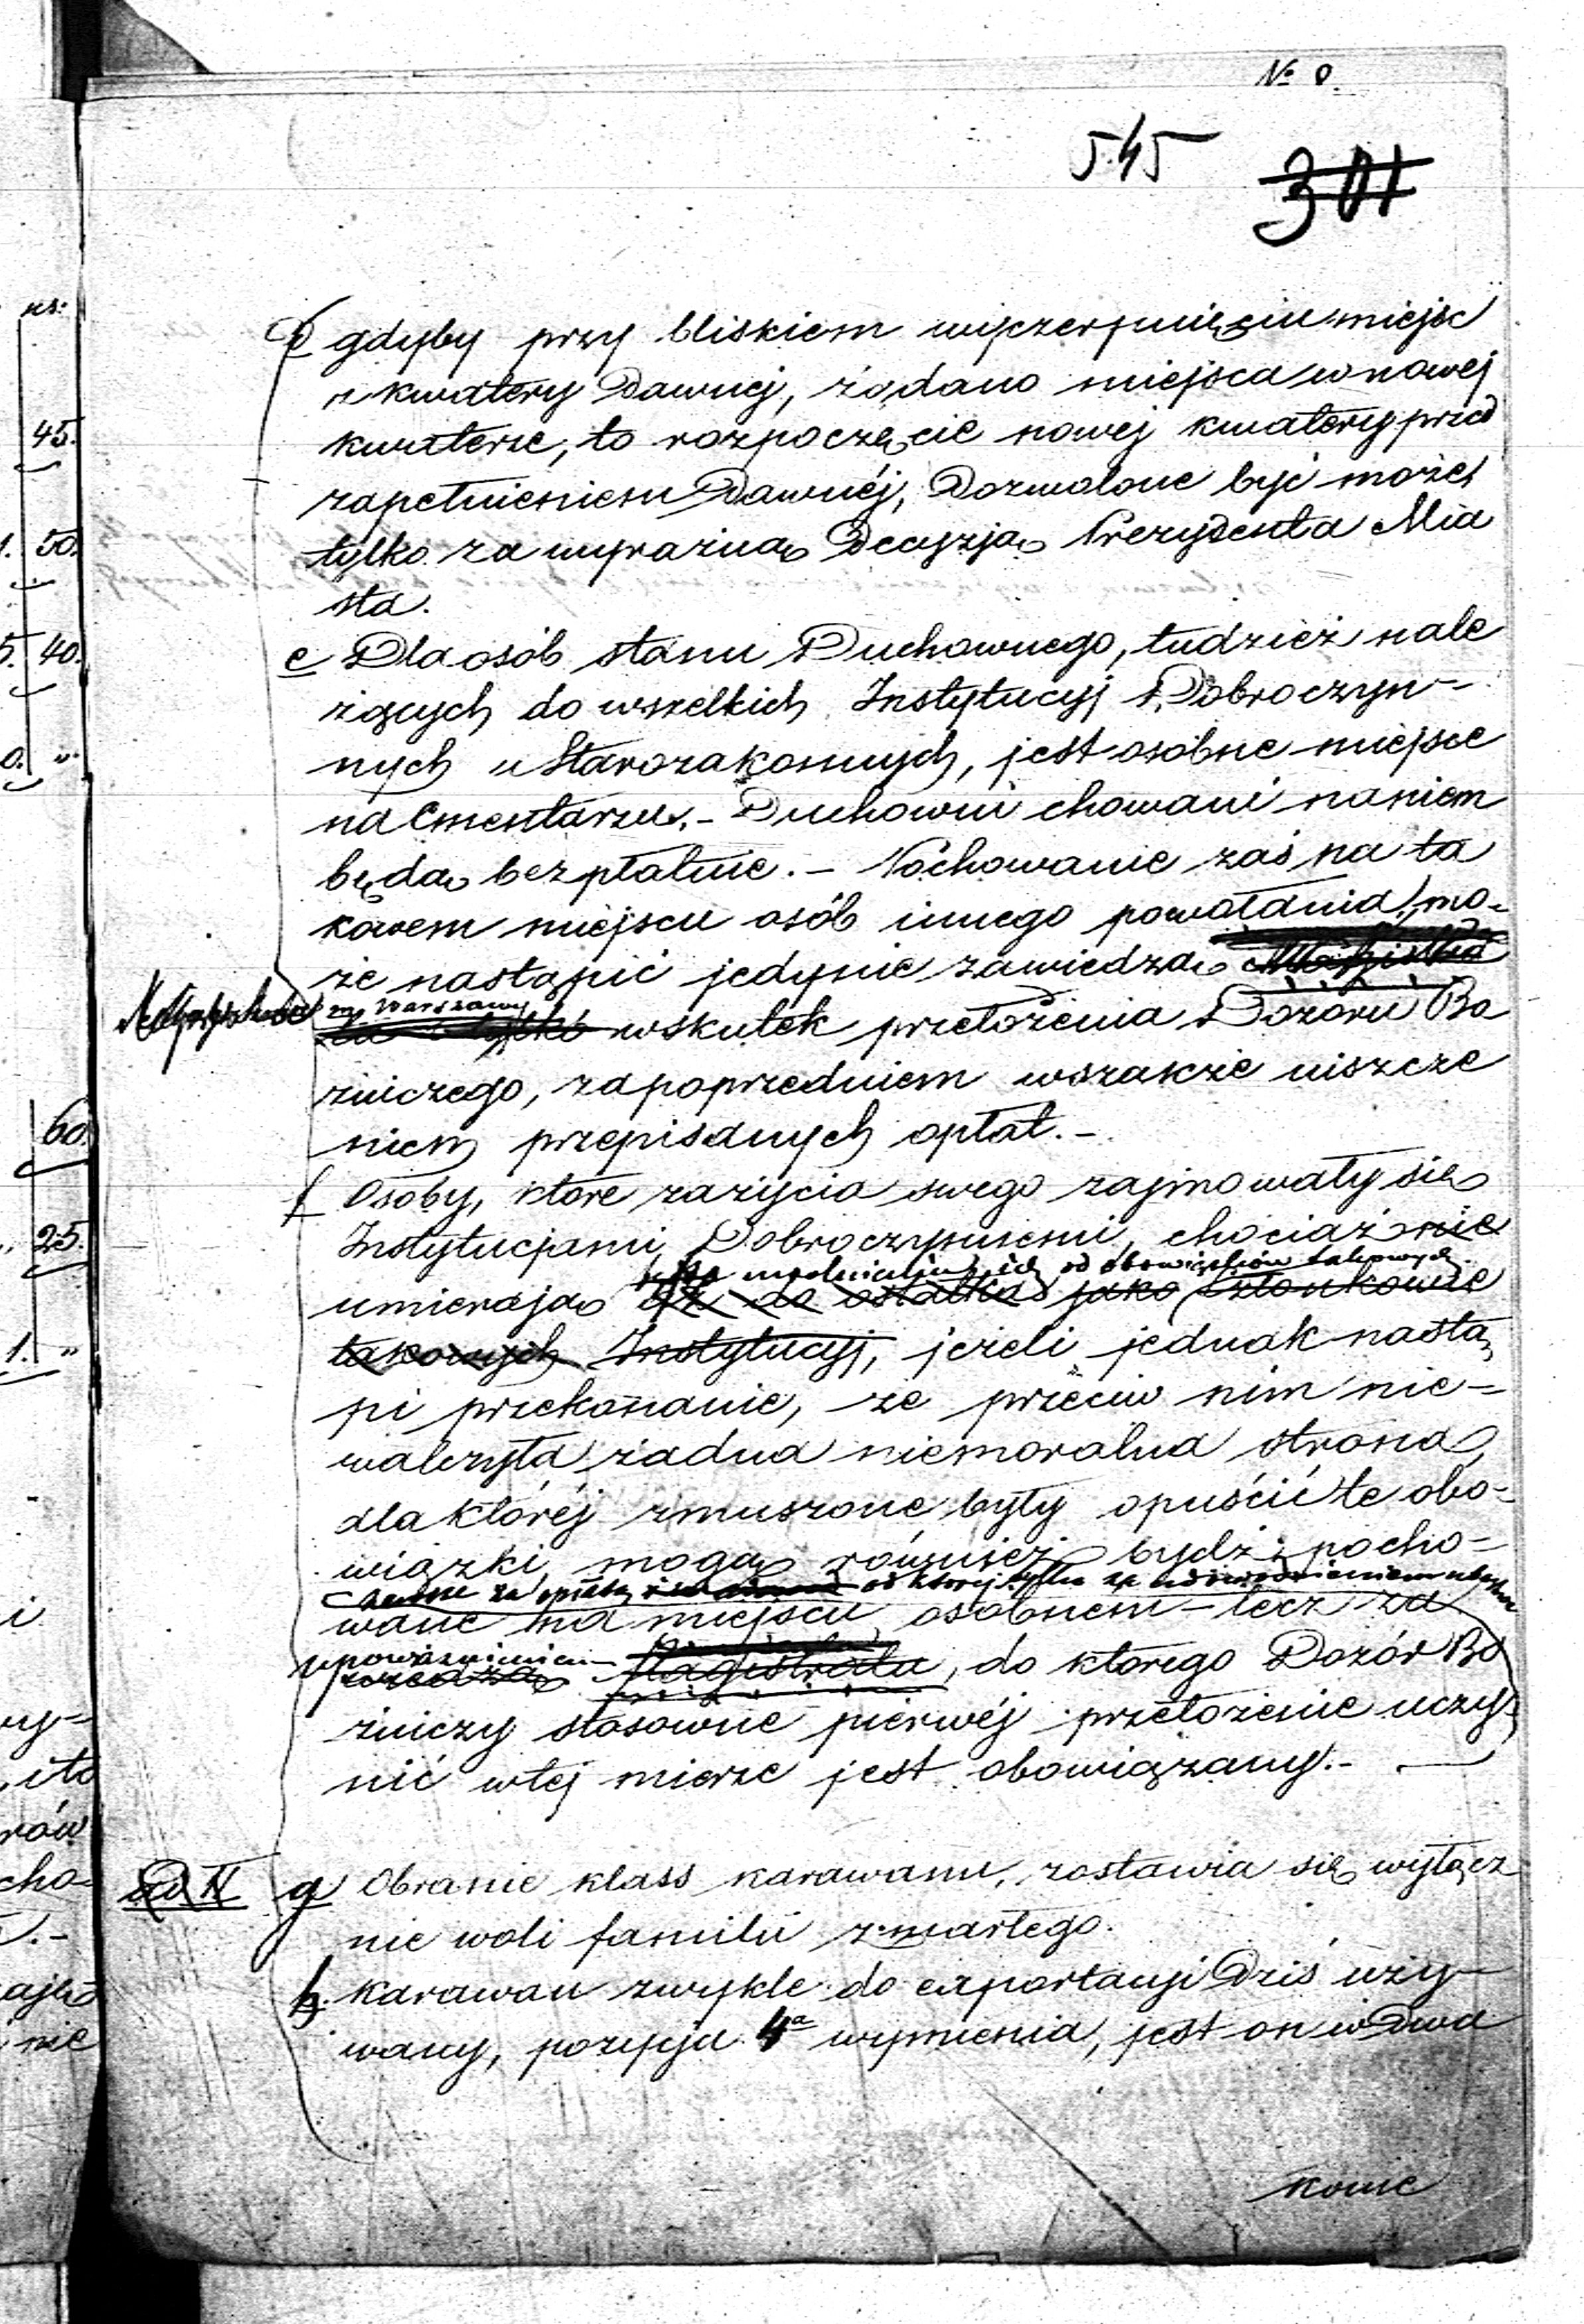 № 8.
545
301
d gdyby przy bliskiem wyczerpnięciu miejsc
z kwatery Dawnej, żądano miejsca w nowej
kwaterze, to rozpoczęcie nowej kwatery przed
zapełnieniem Dawnéj, Dozwolone być może
tylko za wyraźną Decyzją Prezydenta Mia
sta.
e Dla osób stanu Duchownego, tudzież nale
żących do wszelkich Instytucyj Dobroczyn=
nych u Starozakonnych, jest osobne miejsce
na Cmentarzu. – Duchowni chowani na niem
będą bezpłatnie. – Pochowanie zaś na ta
kowem miejscu osób innego powołania, mo-
że nastąpić jedynie za wiedzą Magistratu
m. Warszawy
wskutek przełożenia Dozoru Bo
źniczego, za poprzedniem wszakże uiszcze
niem przepisanych opłat. –
f Osoby, które za życia swego zajmowały się
Instytucjami Dobroczynnemi, chociaż nie
po uwolnieniu ich od obowiązków takowych
umierają aż do ostatka jako Członkowie
takowych Instytucyj, jeżeli jednak nastą
pi przekonanie, że przeciw nim nie=
walczyła żadna niemoralna strona,
dla któréj zmuszone były opuścić te obo=
wiązki, mogą również bydź pocho=
za opłatą od ktorej tylko za
wane na miejscu osobnem – lecz za
upoważnieniem
wiedzą Magistratu, do ktorego Dozór Bo
źniczy stosowne pierwéj przełożenie uczy
nić w téj mierze jest obowiązany. –
ad II
g Obranie klass karawanu, zostawia się wyłącz
nie woli familii zmarłego.
h. Karawan zwykle do exportacyi Dziś uży=
wany, pozycja 4ª wymienia, jest on w Dwa
konie
45.
50.
40.
60.
25.
1. "